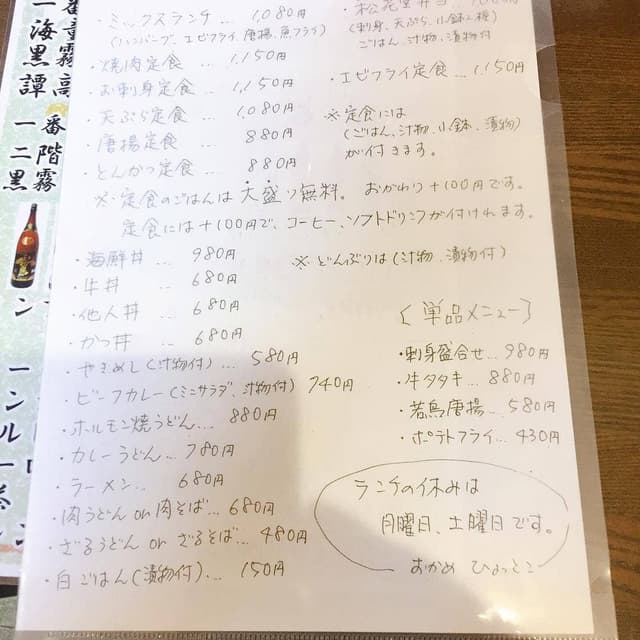 ・ミックスランチ … 1,080円
(ハンバーグ、エビフライ、唐揚、魚フライ)
・焼肉定食 … 1,150円
・お刺身定食 … 1,150円
・天ぷら定食 … 1,080円
・唐揚定食 … 880円
・とんかつ定食 … 880円
・松花堂弁当
(刺身、天ぷら、小鉢2種)
ごはん、汁物、漬物付
・エビフライ定食 … 1,150円
※定食には
(ごはん、汁物、小鉢、漬物)
が付きます。
※・定食のごはんは大盛り無料。おかわり+100円です。
定食には+100円で、コーヒー、ソフトドリンクが付けれます。
・海鮮丼 … 980円
・牛丼 … 680円
・他人丼 … 680円
・かつ丼 … 680円
・やきめし(汁物付) … 580円
・ビーフカレー(ミニサラダ、汁物付) 740円
・ホルモン焼うどん … 880円
・カレーうどん … 780円
・ラーメン … 680円
・肉うどん or 肉そば … 680円
・ざるうどん or ざるそば … 480円
・白ごはん(漬物付) … 150円
※どんぶりは(汁物、漬物付)
[単品メニュー]
・刺身盛合せ … 980円
・牛タタキ … 880円
・若鳥唐揚 … 580円
・ポテトフライ … 430円
ランチの休みは
月曜日、土曜日です。
おかめ ひょっとこ
番童霧高
一海黒譚
一番階霧
一二黒